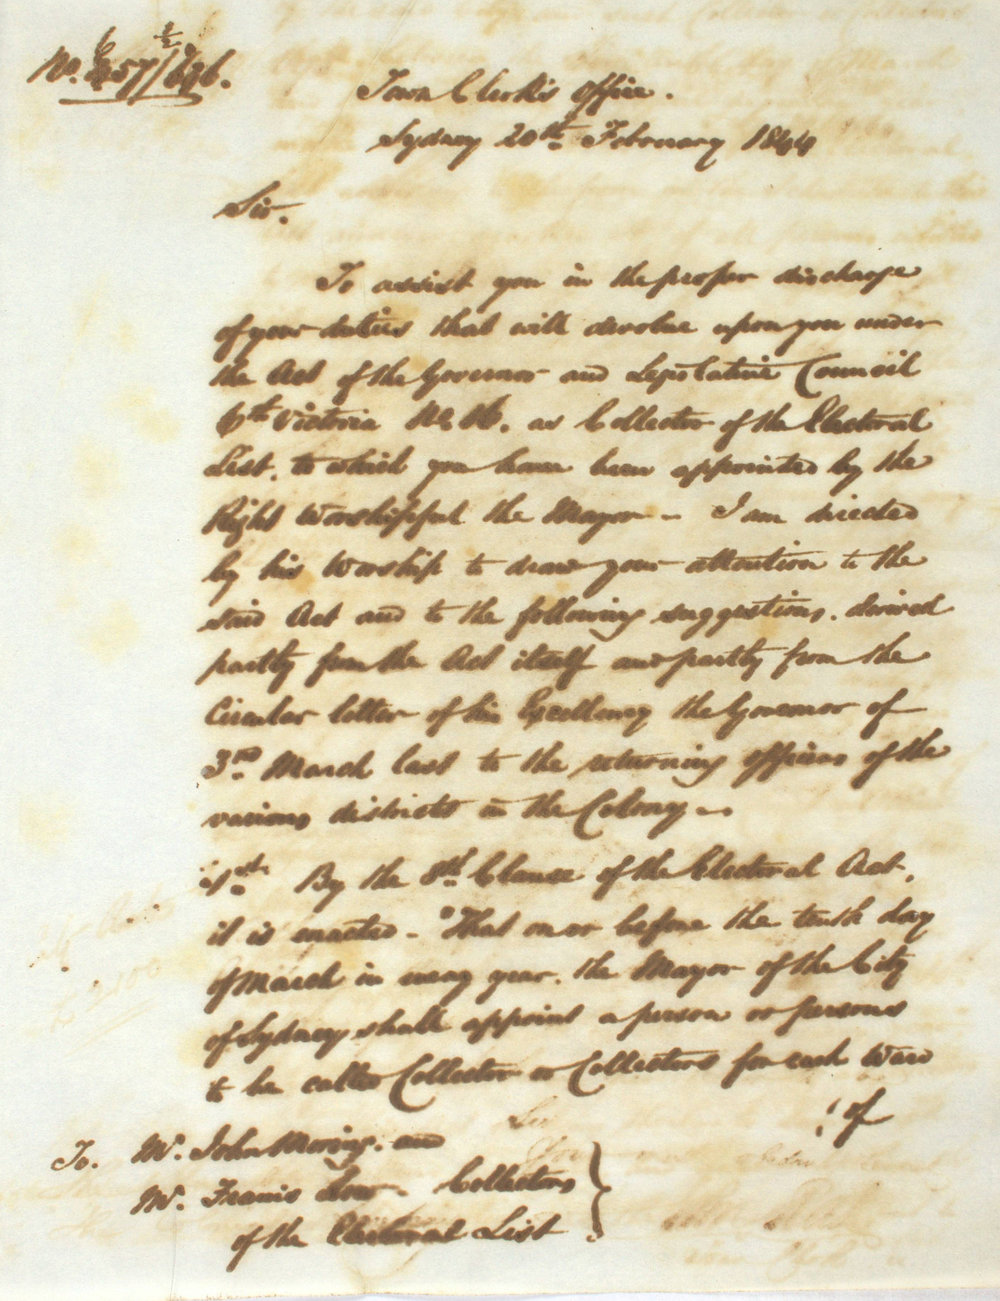 Town Clerk's Office.
Sydney 20th February 1844
Sir.
To assist you in the proper discharge
of your duties that will devolve upon you under
the Act of the Governor and Legislative Council
6th Victoria No 16. as Collector of the Electoral
List, to which you have been appointed by the
Right Worshipful the Mayor - I am directed
by his Worship to draw your attention to the
said Act and to the following suggestions. derived
partly from the Act itself and partly from the
Circular letter of his Excellency the Governor of
3rd March last to the returning officers of the
various districts in the Colony -
1st By the 8th Clause of the Electoral Act,
it is enacted - "That on or before the tenth day
of March in every year. the Mayor of the City
of Sydney shall appoint a person or persons
to be called Collector or Collectors for each Ward
of
To. Mr. John and
Mr. Francis Low. Collectors
of the Electoral List